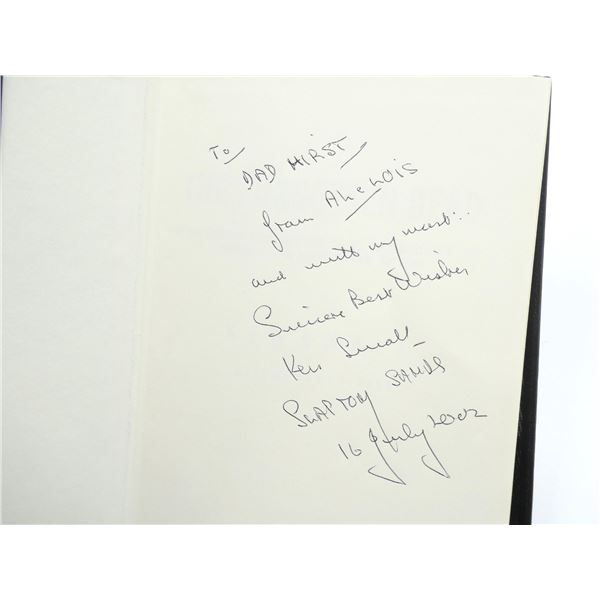 To
DAD HIRST
from AL & LOIS
and with my most..
Sincere Best Wishes
Ken Small
SLAPTON SANDS
16 July 2002